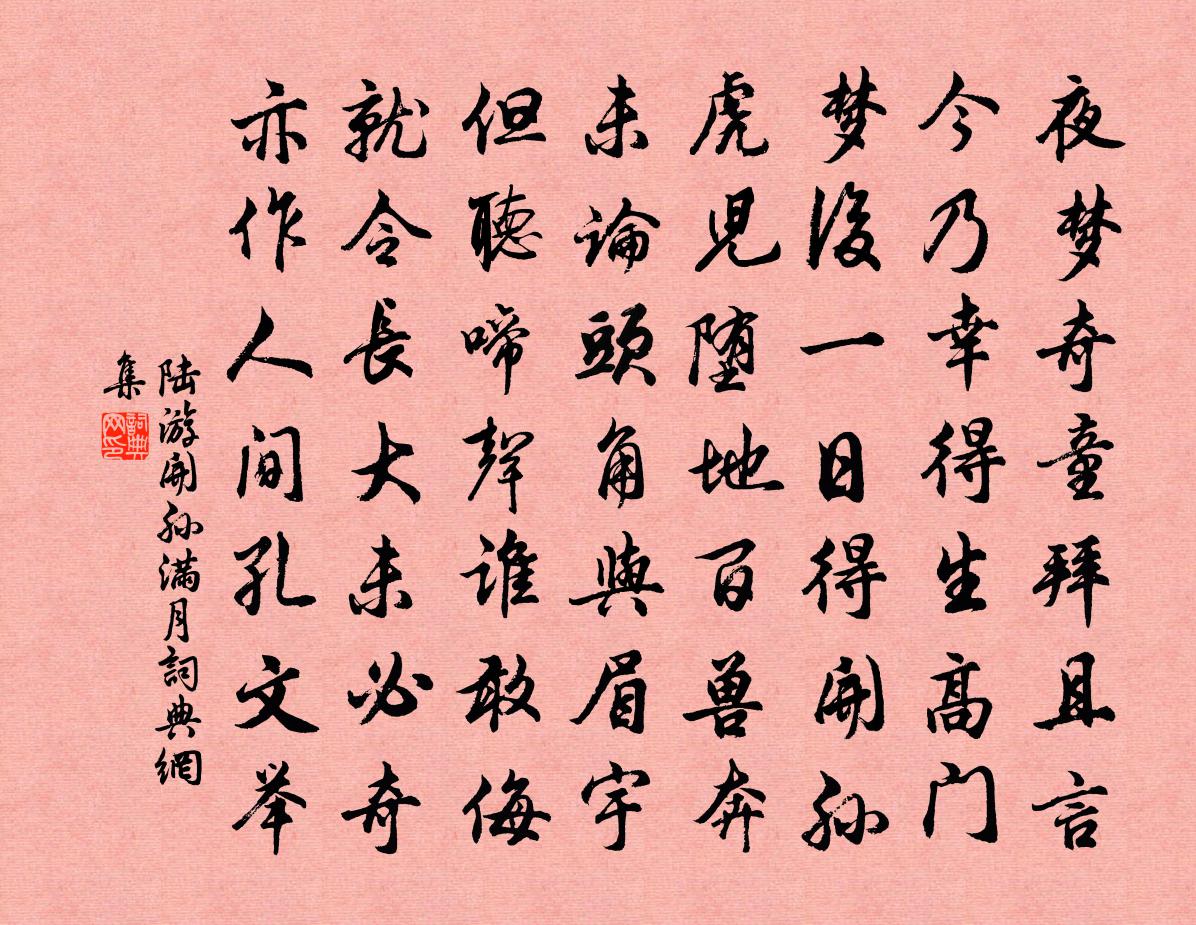 夜梦奇童拜且言
今乃幸得生高门
梦後一日得開孙
虎児堕地百兽奔
未論頭角與眉宇
但聽啼聲誰敢侮
就令長大未必奇
亦作人间孔文举
陆游開孙满月詞典網
集
詞典
网印